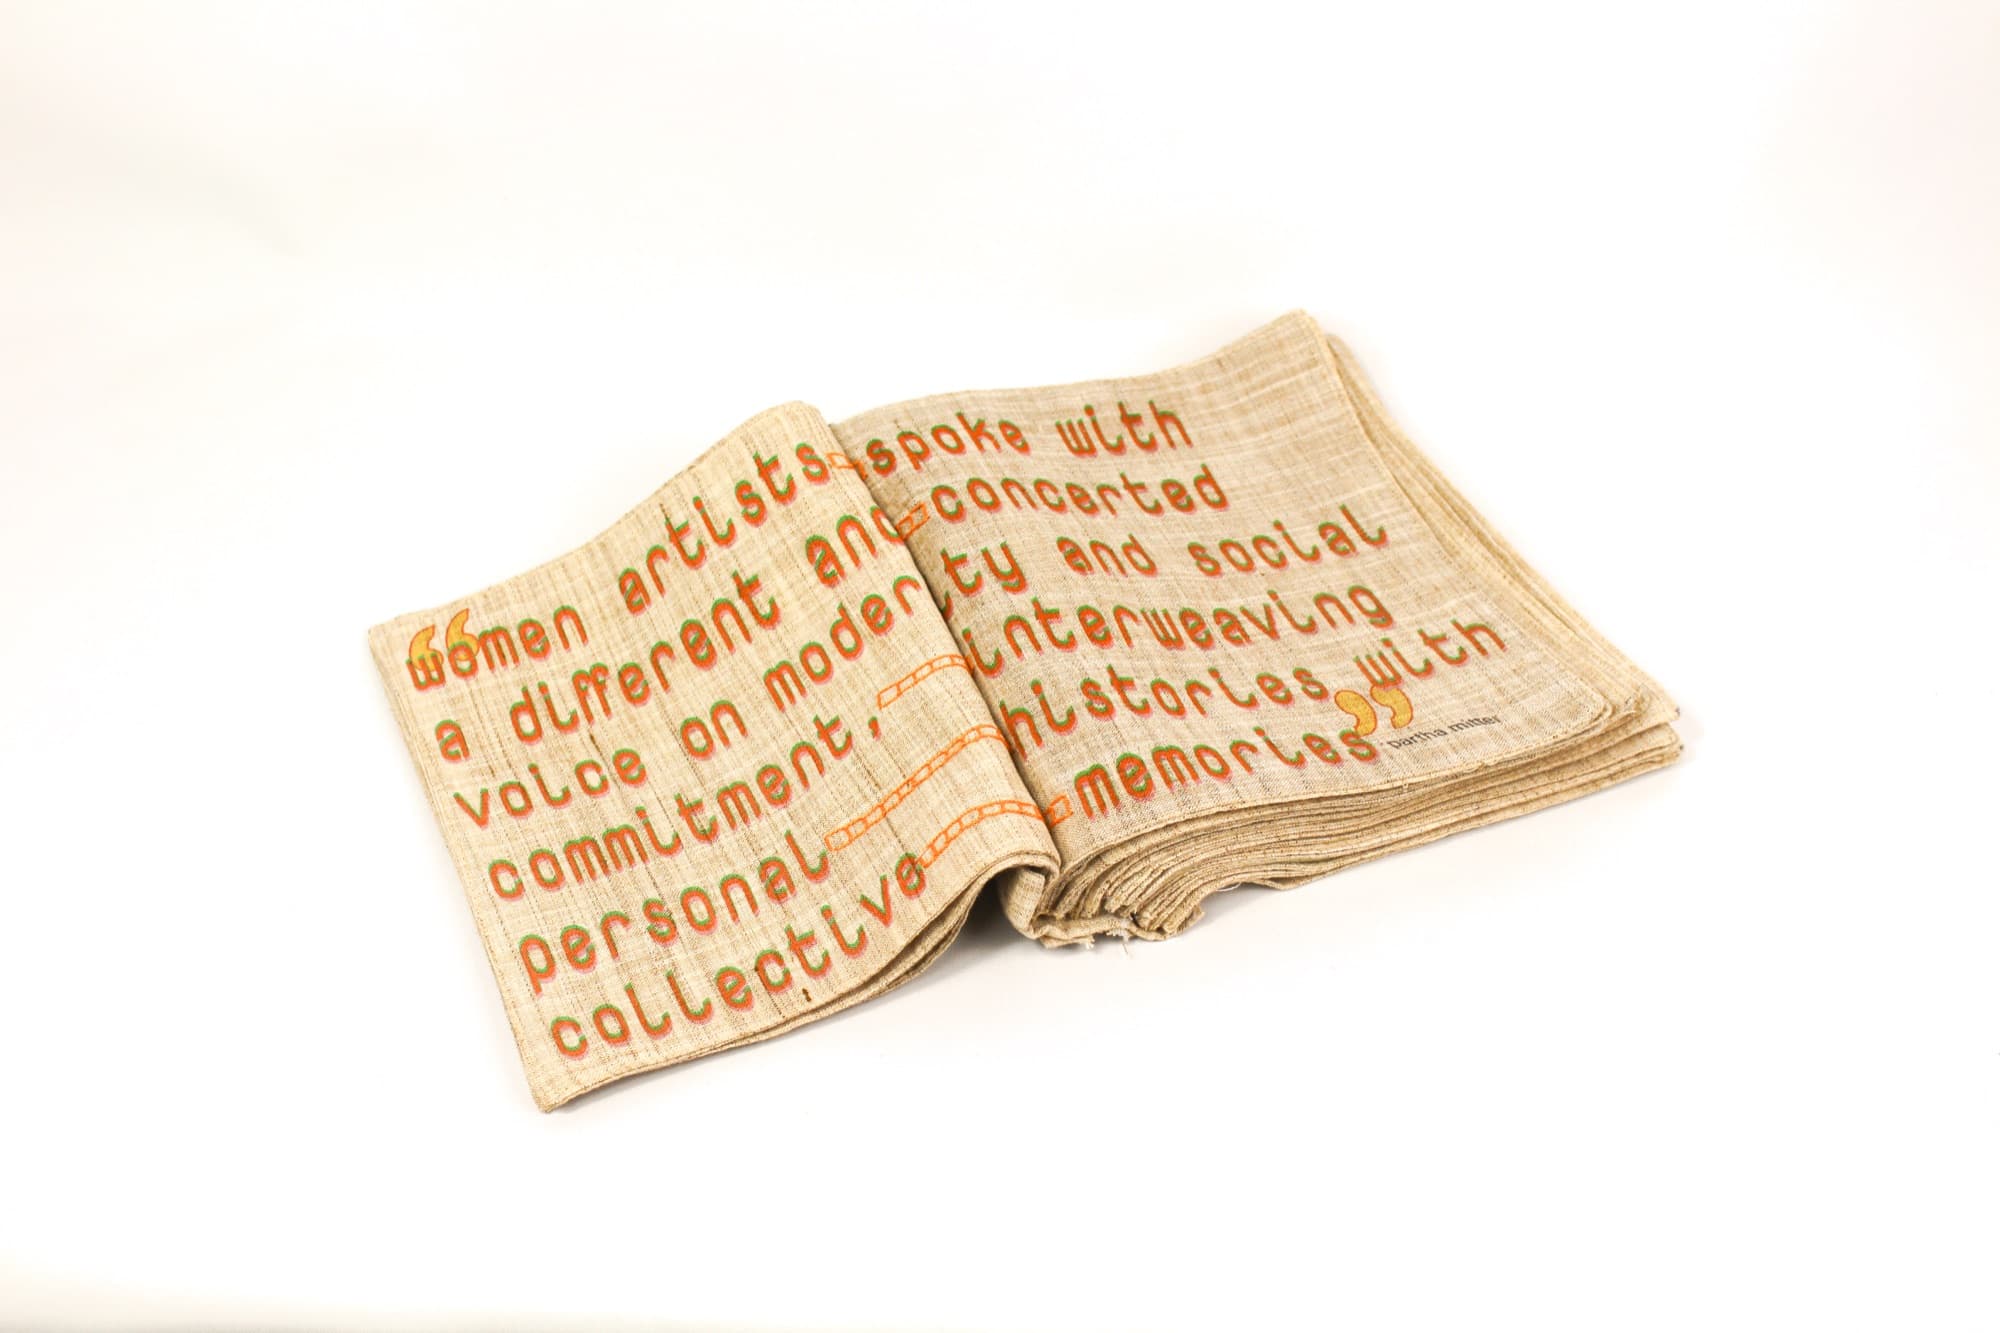 “women artists spoke with
a different and concerted
voice on modernity and social
commitment, interweaving
personal histories with
collective memories”
partha mitter